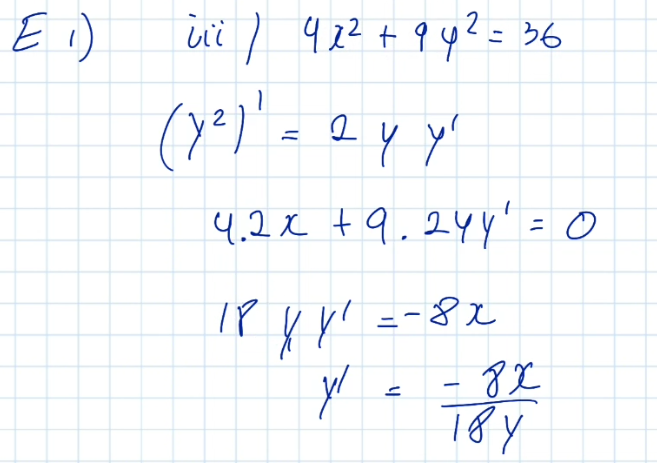 E 1) iii) 4x² + 9y² = 36
(y²)' = 2 y y'
4.2x + 9.2yy' = 0
18 y y' = -8x
y' = -8x/18y